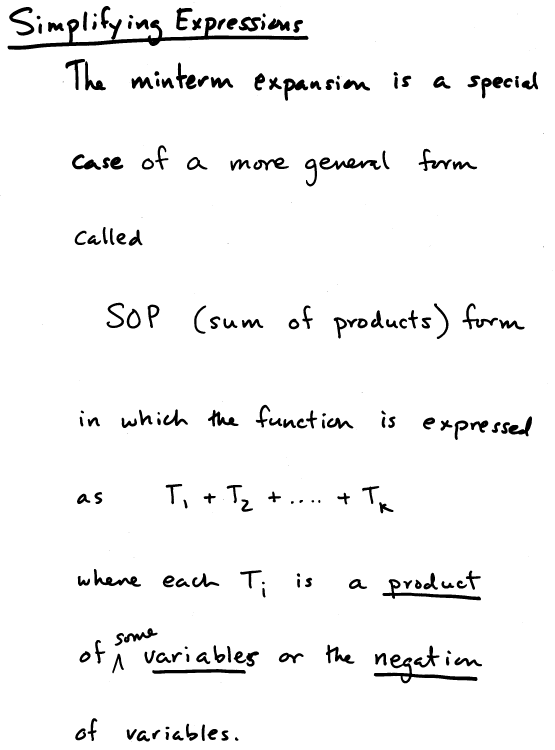 Simplifying Expressions
The minterm expansion is a special
case of a more general form
called
SOP (sum of products) form
in which the function is expressed
as T₁ + T₂ + .... + Tₖ
where each Tᵢ is a product
of some variables or the negation
of variables.